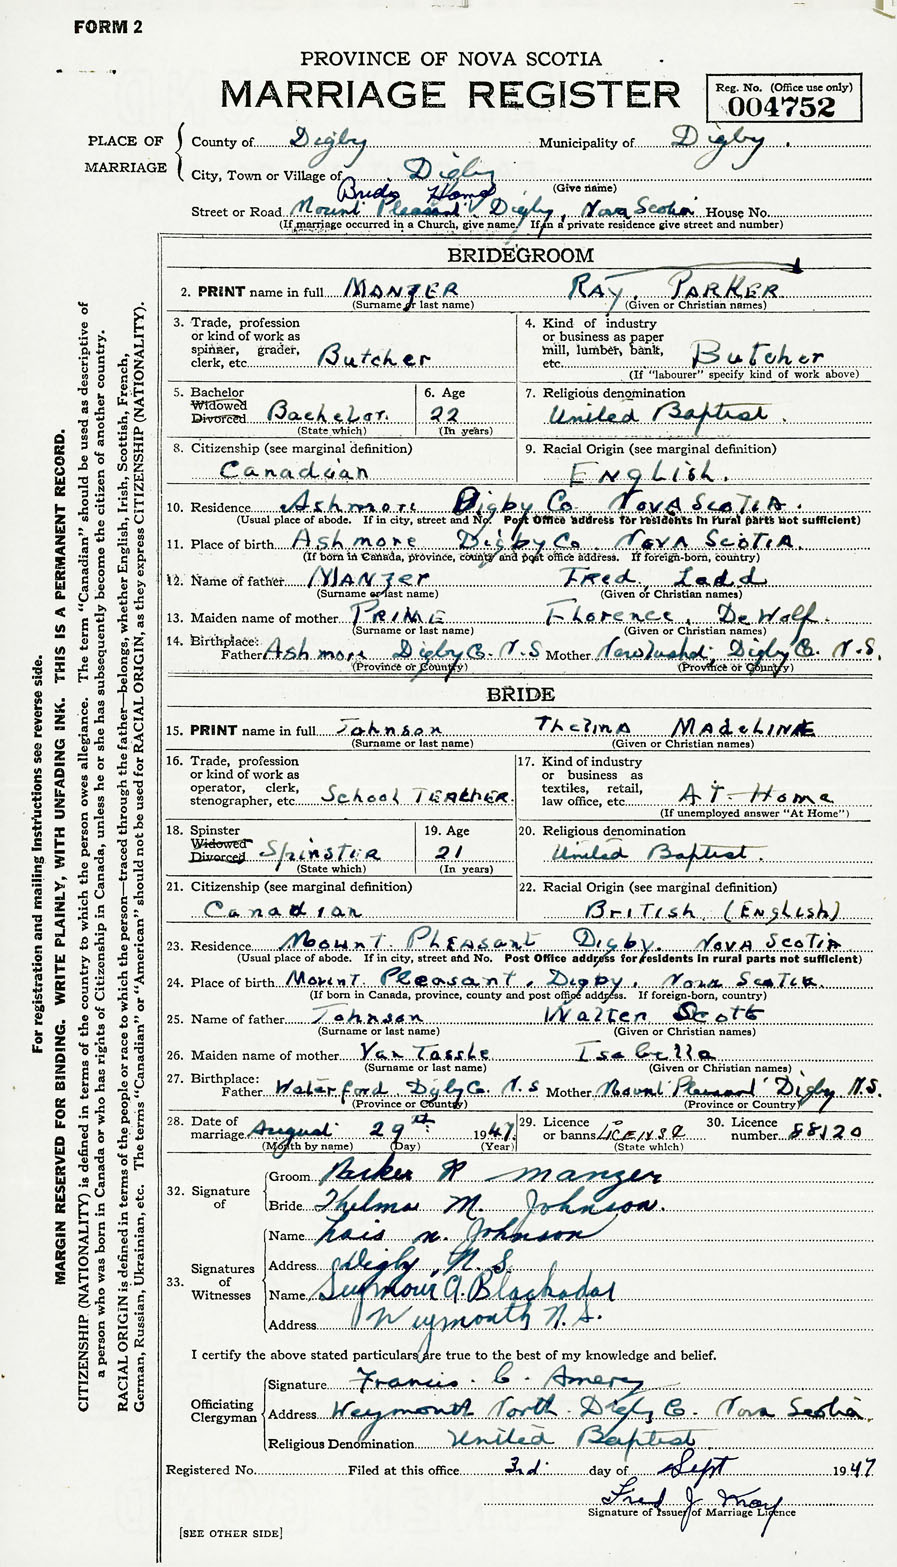 FORM 2
PROVINCE OF NOVA SCOTIA
MARRIAGE REGISTER
Reg. No. (Office use only)
004752
PLACE OF MARRIAGE
County of Digby Municipality of Digby.
City, Town or Village of Digby
(Give name)
Bride's Home
Street or Road Mount Pleasant Digby, Nova Scotia House No.
(If marriage occurred in a Church, give name. If in a private residence give street and number)
BRIDEGROOM
2. PRINT name in full MANZER RAY, PARKER
(Surname or last name) (Given or Christian names)
3. Trade, profession or kind of work as spinner, grader, clerk, etc. Butcher
4. Kind of industry or business as paper mill, lumber, bank, etc. Butcher
(If "labourer" specify kind of work above)
5. Bachelor Widowed Divorced Bachelor.
(State which)
6. Age 22
(In years)
7. Religious denomination United Baptist.
8. Citizenship (see marginal definition) Canadian
9. Racial Origin (see marginal definition) English.
10. Residence Ashmore Digby Co. Nova Scotia.
(Usual place of abode. If in city, street and No. Post Office address for residents in rural parts not sufficient)
11. Place of birth Ashmore Digby Co. Nova Scotia.
(If born in Canada, province, county and post office address. If foreign-born, country)
12. Name of father Manzer Fred Ladd
(Surname or last name) (Given or Christian names)
13. Maiden name of mother PRIME Florence, DeWolf.
(Surname or last name) (Given or Christian names)
14. Birthplace: Father Ashmore Digby Co. N.S Mother Digby Co. N.S.
(Province or Country) (Province or Country)
BRIDE
15. PRINT name in full Johnson Thelma MADELINE
(Surname or last name) (Given or Christian names)
16. Trade, profession or kind of work as operator, clerk, stenographer, etc. School TEACHER.
17. Kind of industry or business as textiles, retail, law office, etc. AT-Home
(If unemployed answer "At Home")
18. Spinster Widowed Divorced Spinster
(State which)
19. Age 21
(In years)
20. Religious denomination United Baptist.
21. Citizenship (see marginal definition) Canadian
22. Racial Origin (see marginal definition) British. (English)
23. Residence Mount Pleasant Digby. Nova Scotia
(Usual place of abode. If in city, street and No. Post Office address for residents in rural parts not sufficient)
24. Place of birth Mount Pleasant, Digby, Nova Scotia.
(If born in Canada, province, county and post office address. If foreign-born, country)
25. Name of father Johnson Walter Scott
(Surname or last name) (Given or Christian names)
26. Maiden name of mother Van Tassle Isabella
(Surname or last name) (Given or Christian names)
27. Birthplace: Father Waterford Digby Co. N.S Mother Mount Pleasant Digby N.S.
(Province or Country) (Province or Country)
28. Date of marriage August 29th. 1947.
(Month by name) (Day) (Year)
29. Licence or banns LICENSE
(State which)
30. Licence number 88120
32. Signature of
Groom Parker R Manzer
Bride Thelma M. Johnson.
33. Signatures of Witnesses
Name Lois N. Johnson
Address Digby, N.S.
Name Seymour A. Blackadar
Address Weymouth N.S.
I certify the above stated particulars are true to the best of my knowledge and belief.
Officiating Clergyman
Signature Francis. C. Amery
Address Weymouth North Digby Co. Nova Scotia.
Religious Denomination United Baptist.
Registered No. Filed at this office 3rd day of Sept 1947
Fred J. May
Signature of Issuer of Marriage Licence
[SEE OTHER SIDE]
For registration and mailing instructions see reverse side.
MARGIN RESERVED FOR BINDING. WRITE PLAINLY, WITH UNFADING INK. THIS IS A PERMANENT RECORD.
CITIZENSHIP (NATIONALITY) is defined in terms of the country to which the person owes allegiance. The term "Canadian" should be used as descriptive of
a person who was born in Canada or who has rights of Citizenship in Canada, unless he or she has subsequently become the citizen of another country.
RACIAL ORIGIN is defined in terms of the people or race to which the person—traced through the father—belongs, whether English, Irish, Scottish, French,
German, Russian, Ukrainian, etc. The terms "Canadian" or "American" should not be used for RACIAL ORIGIN, as they express CITIZENSHIP (NATIONALITY).